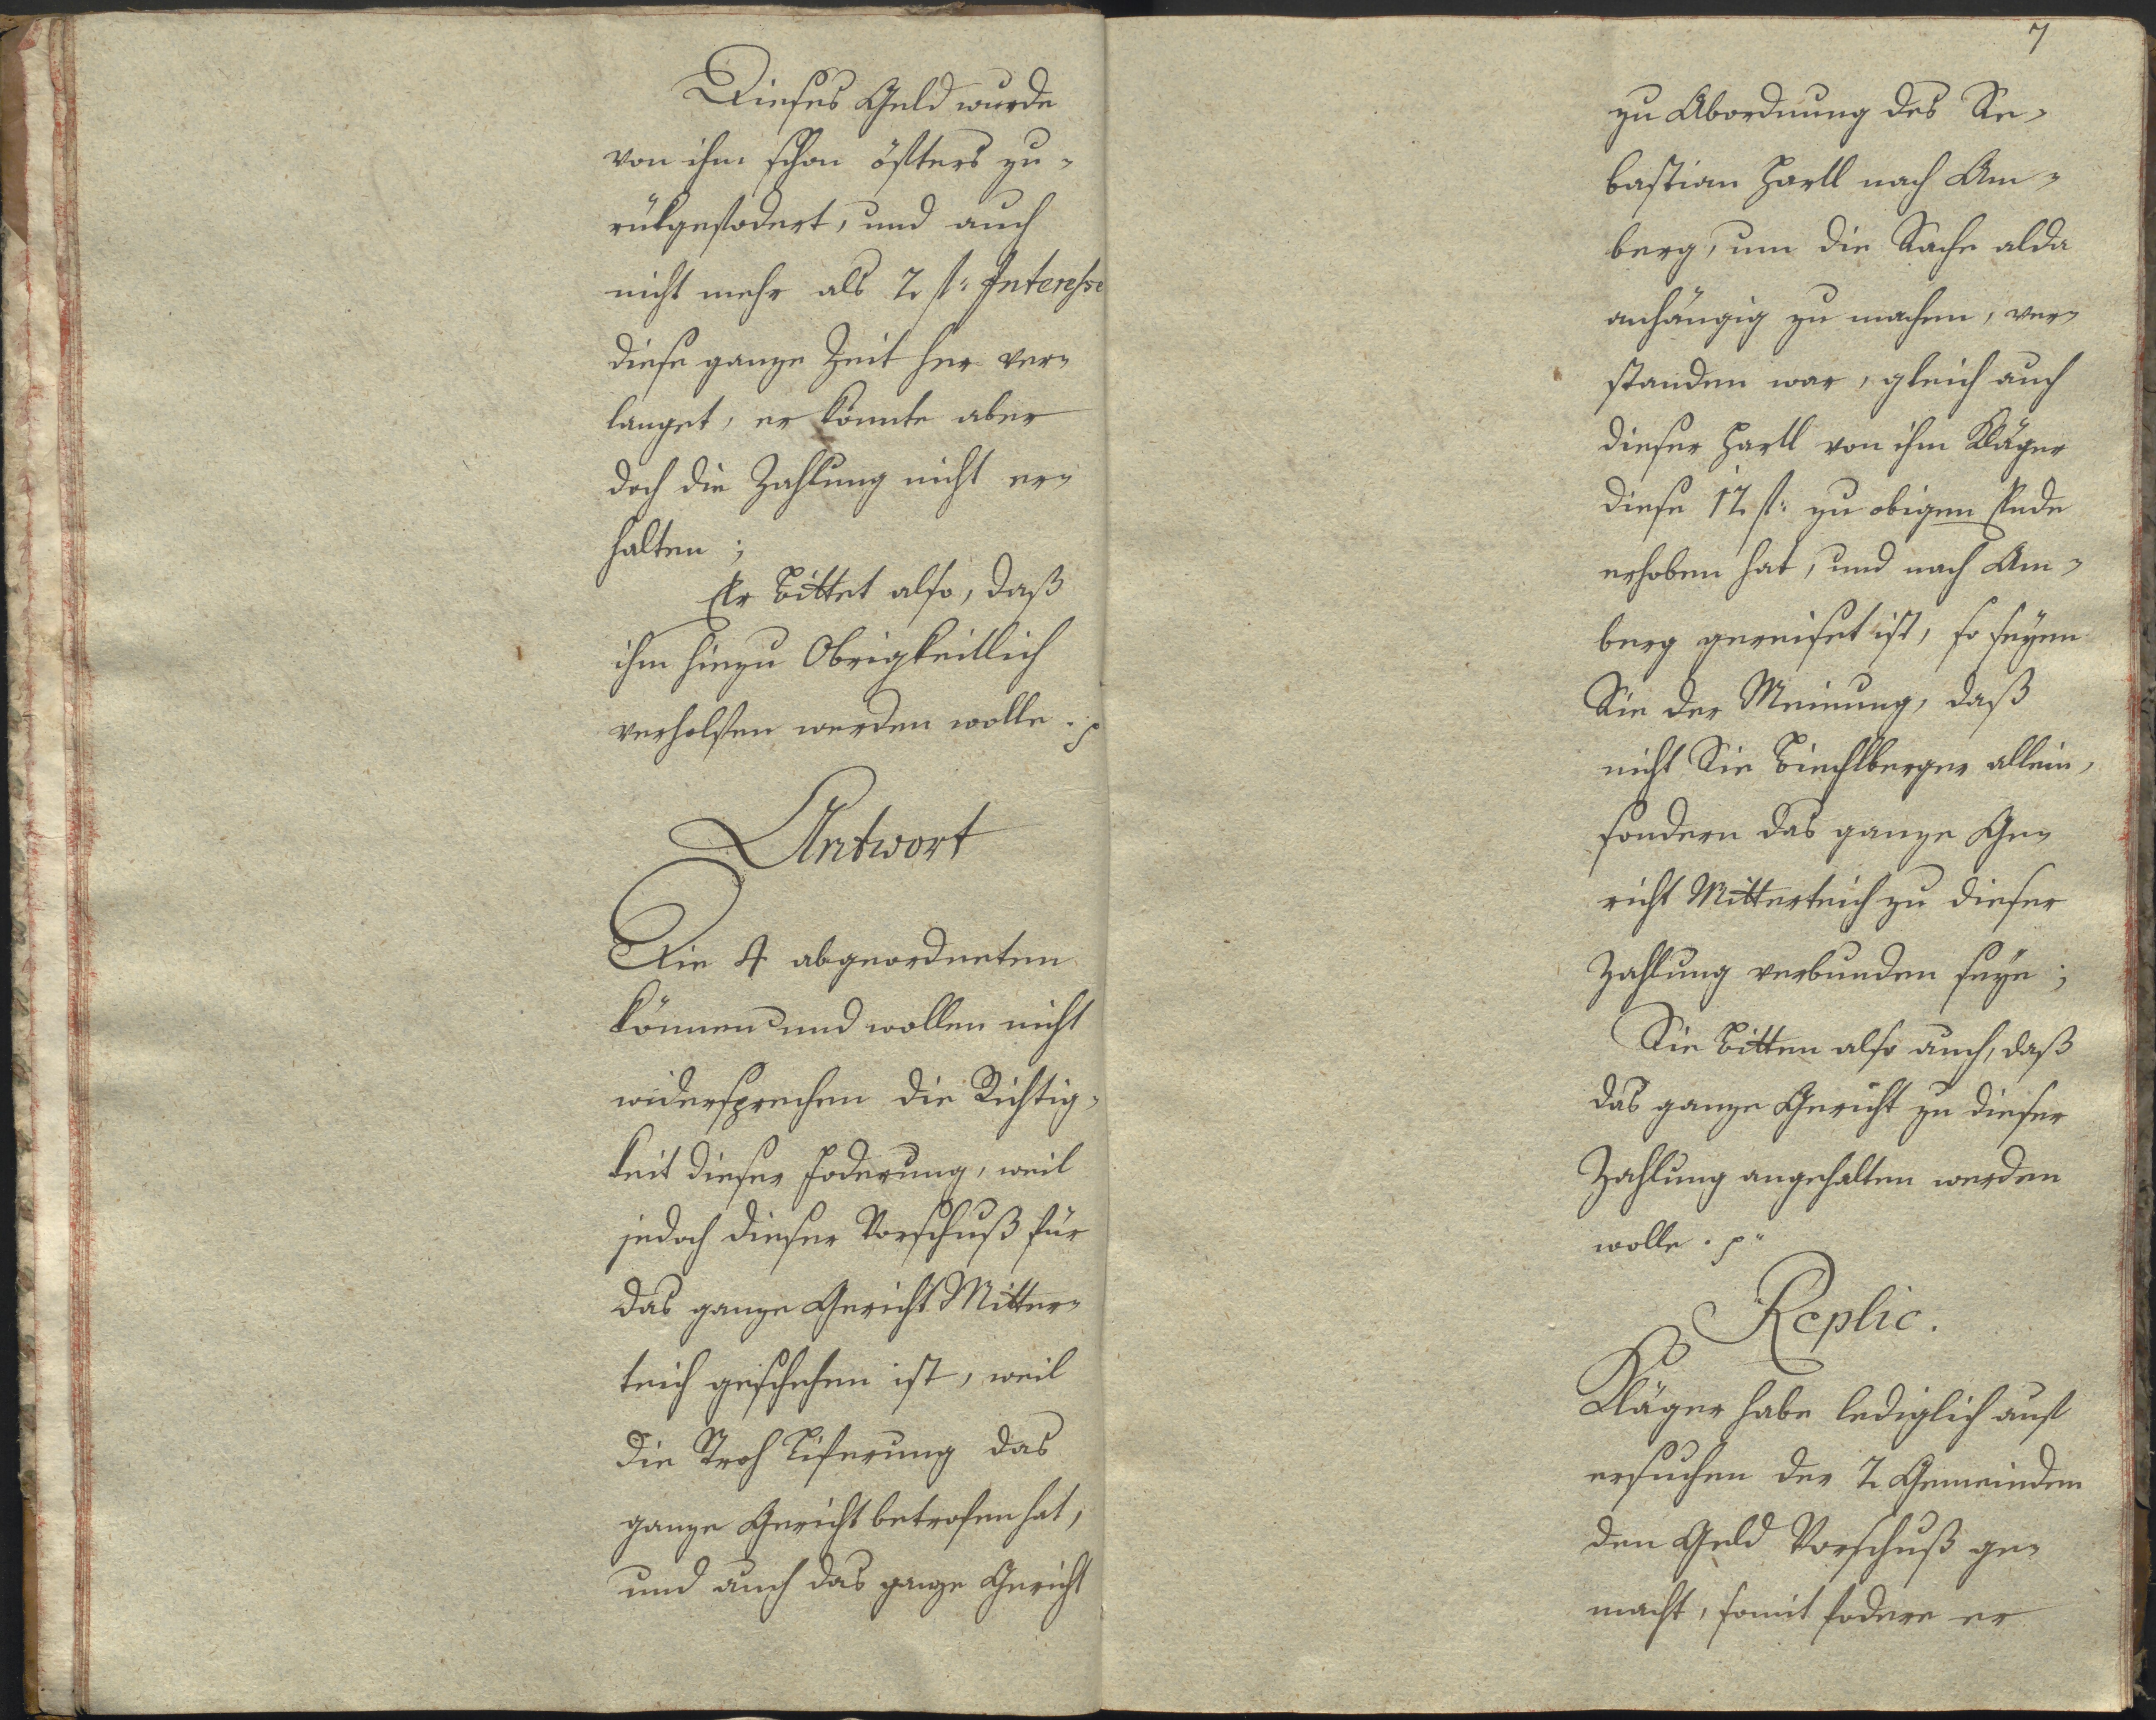 Dieses Geld wurde
von ihm schon öfters zu-
rükgefodert, und auch
nicht mehr als 2 fl: Interesse
diese ganze Zeit her ver-
langet, er konnte aber
doch die Zahlung nicht er-
halten;
Er bittet also, daß
ihm hiezu Obrigkeitlich
verholfen werden wolle. p
Antwort
Die 4 abgeordneten
können und wollen nicht
widersprechen die Richtig-
keit dieser Foderung, weil
jedoch dieser Vorschuß für
das ganze Gericht Mitter-
teich geschehen ist, weil
die Stroh Liferung das
ganze Gericht betrofen hat,
und auch das ganze Gericht
7
zu Abordnung des Se-
bastian Hartl nach Am-
berg, um die Sache alda
anhängig zu machen, ver-
standen war, gleich auch
dieser Hartl von ihm Kläger
diese 12 fl: zu obigem Ende
erhoben hat, und nach Am-
berg gereiset ist, so seyen
Sie der Meinung, daß
nicht Sie Biechlberger allein,
sondern das ganze Ge-
richt Mitterteich zu dieser
Zahlung verbunden seye;
Sie bitten also auch, daß
das ganze Gericht zu dieser
Zahlung angehalten werden
wolle. p
Replic.
Kläger habe lediglich auf
ersuchen der 2 Gemeinden
den Geld Vorschuß ge-
macht, somit fodere er